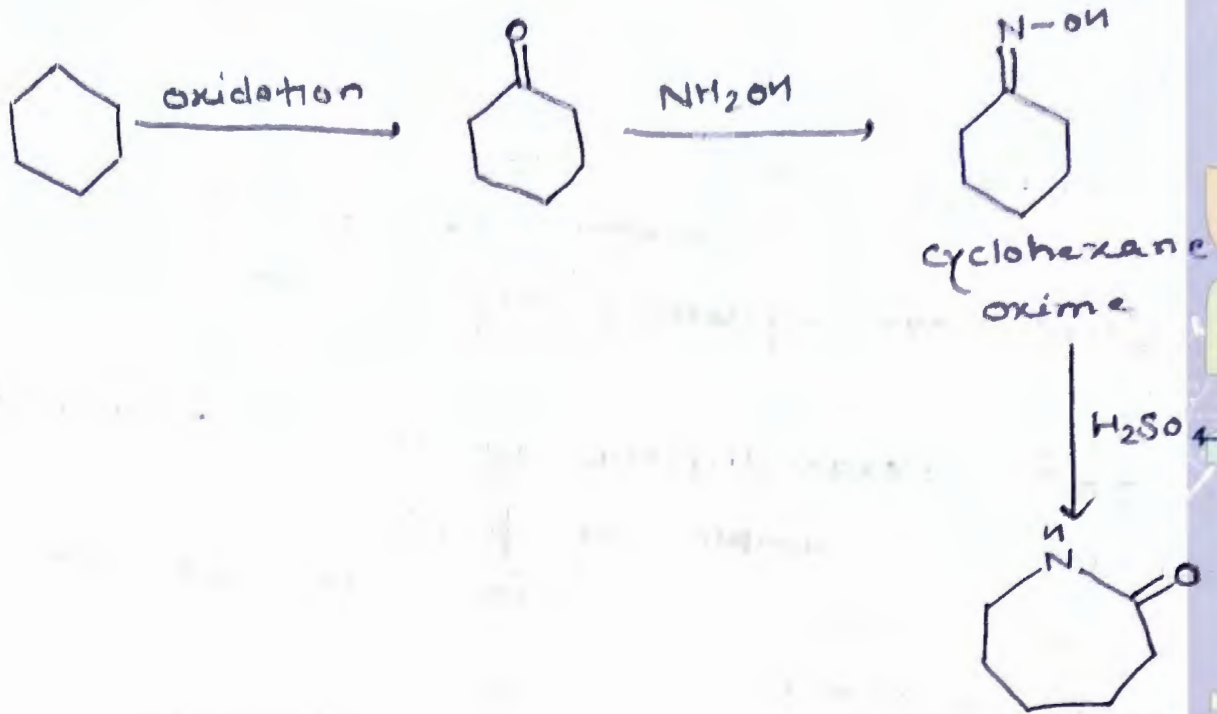 O
N-OH
oxidation
NH₂OH
cyclohexane
oxime
H₂SO₄
H
N
O